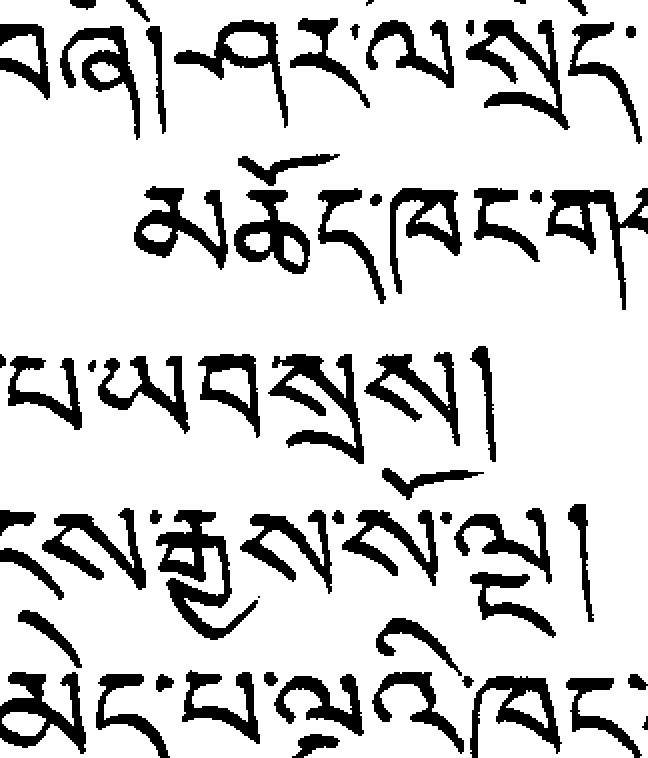 བཞི། ཤར་ལ་སྲིད་
མཆོད་ཁང་ག
པ་ཡབ་སྲས།
ངས་རྒྱས་སོ་ལྔ།
མེད་པ་ལྷའི་ཁང་